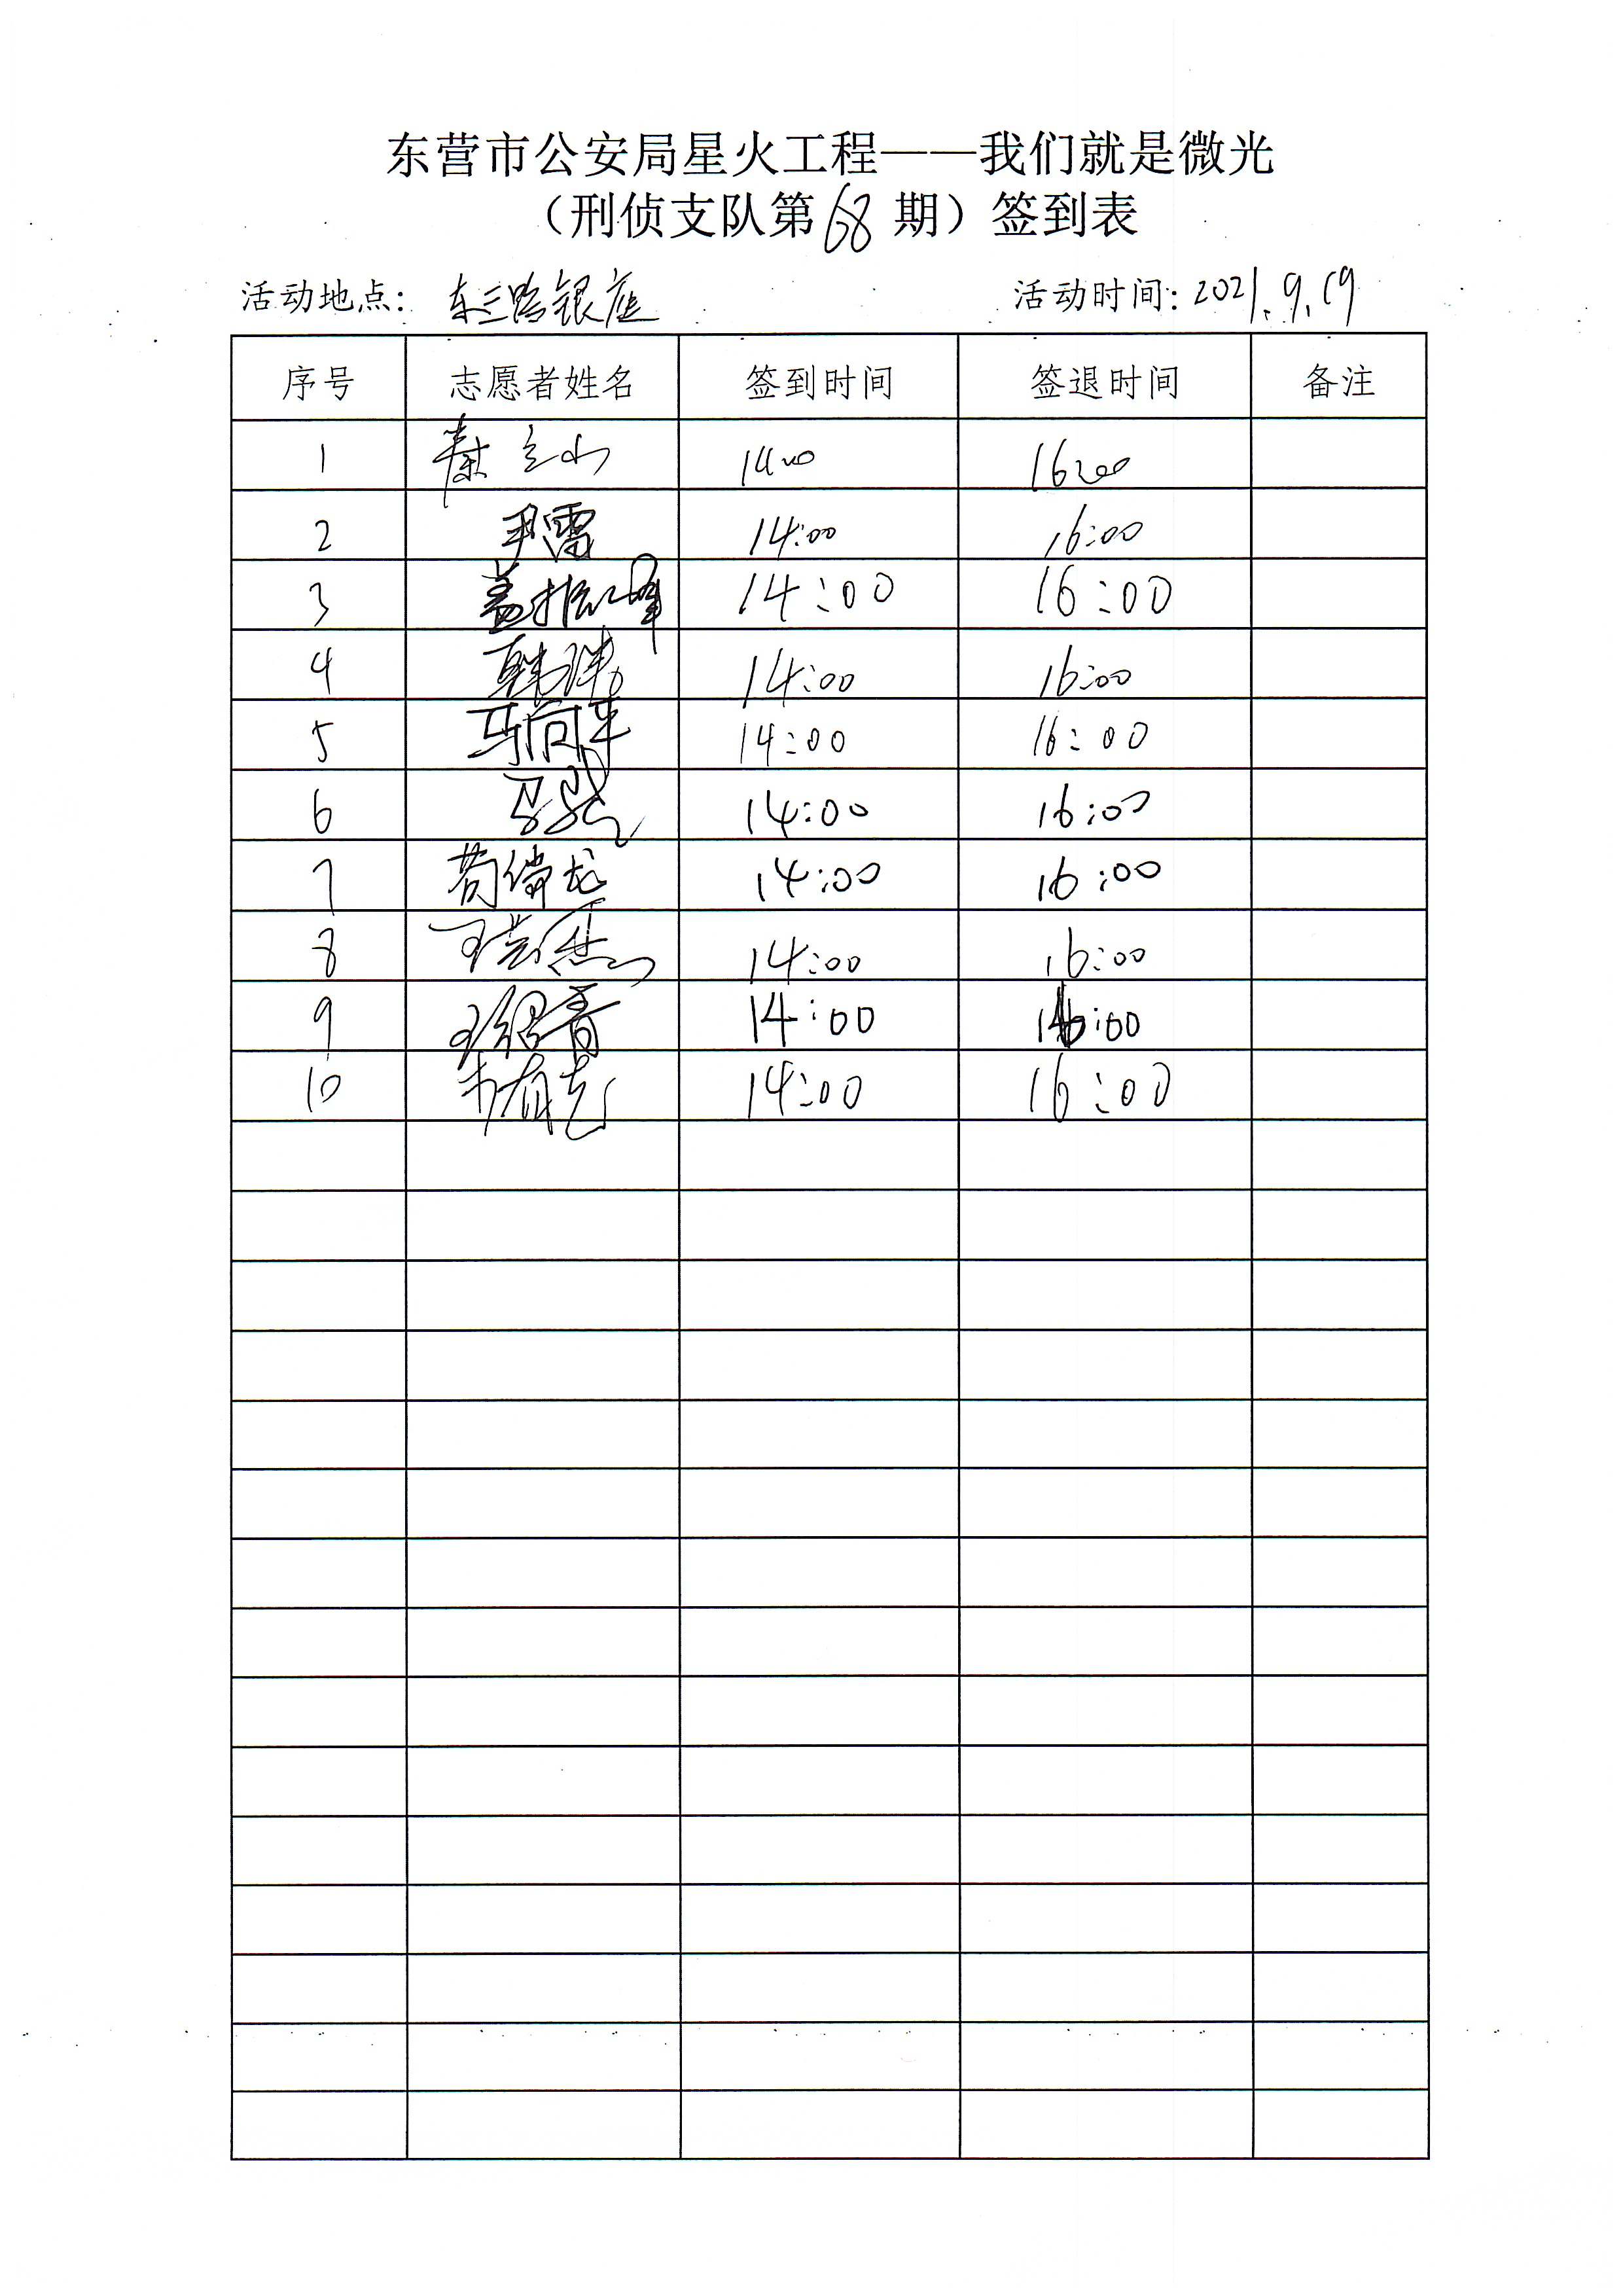 东营市公安局星火工程——我们就是微光
（刑侦支队第68期）签到表
活动地点：东三路银座 活动时间：2021.9.19
序号 志愿者姓名 签到时间 签退时间 备注
1 秦立山 14:00 16:00
2 尹雷 14:00 16:00
3 盖振峰 14:00 16:00
4 韩玮 14:00 16:00
5 马向华 14:00 16:00
6 14:00 16:00
7 苟倩龙 14:00 16:00
8 王 14:00 16:00
9 王绍青 14:00 16:00
10 韦有志 14:00 16:00